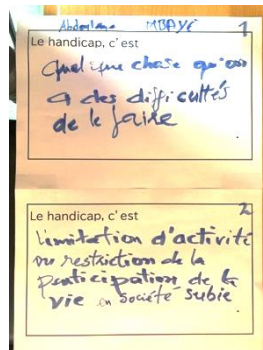 Abdoulaye MBAYE 1
Le handicap, c'est
Quelque chose qu'on
a des difficultés
de le faire
2
Le handicap, c'est
limitation d'activité
ou restriction de la
participation de la
vie en société subie